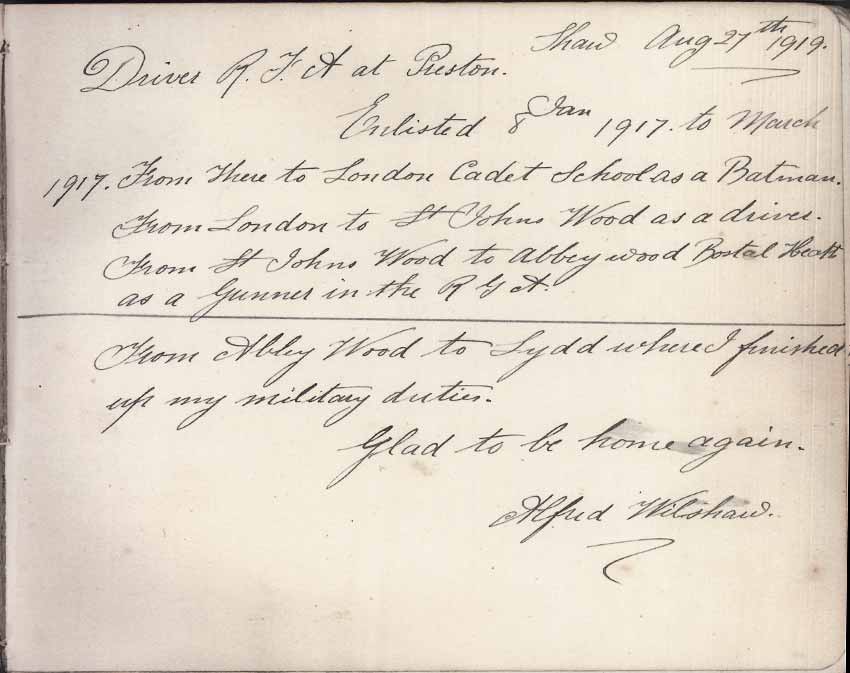 Shaw Aug 27th 1919.
Driver R. F. A at Preston.
Enlisted 8 Jan 1917. to March
1917. From there to London Cadet School as a Batman.
From London to St Johns Wood as a driver.
From St Johns Wood to Abbey wood Bostal Heath
as a Gunner in the R G A.
From Abbey Wood to Lydd where I finished
up my military duties.
Glad to be home again.
Alfred Wilshaw.